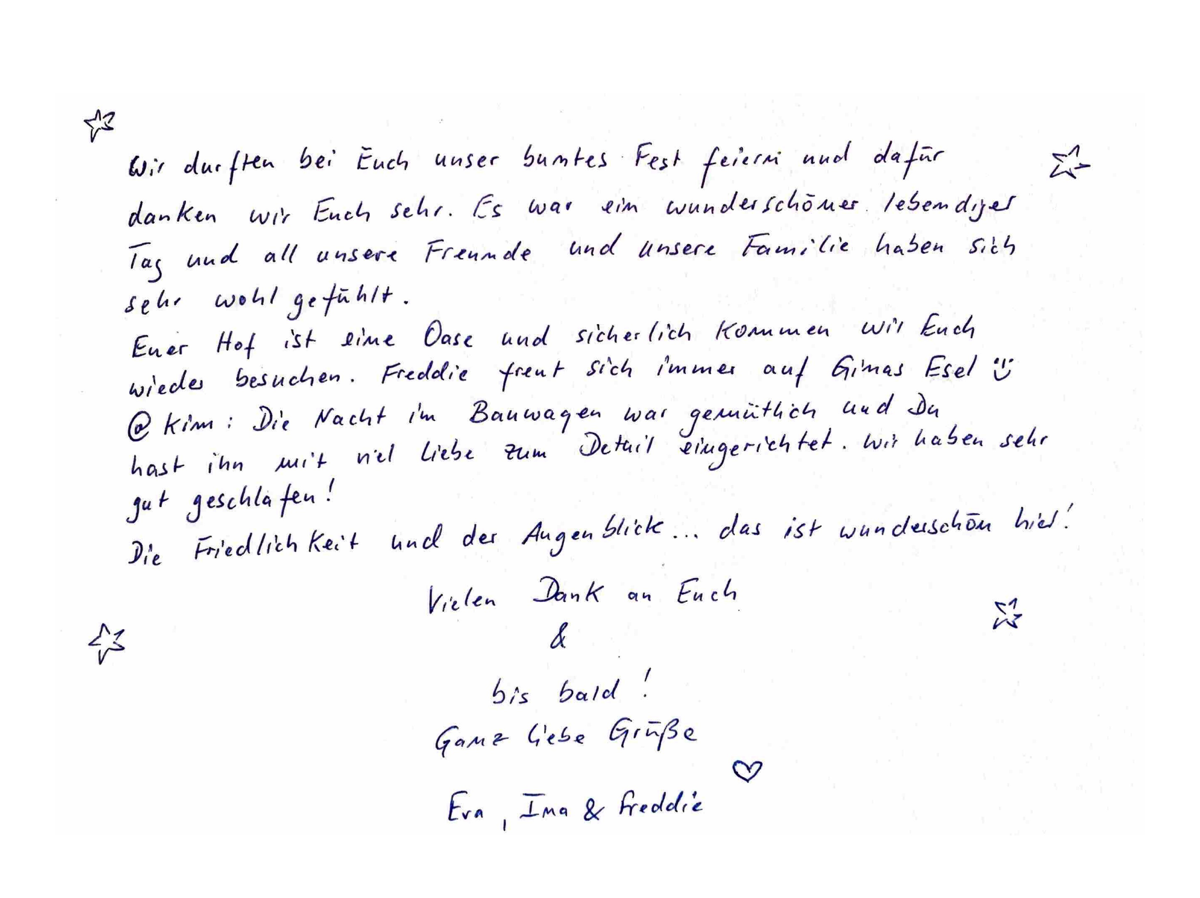 Wir durften bei Euch unser buntes Fest feiern und dafür
danken wir Euch sehr. Es war ein wunderschöner lebendiger
Tag und all unsere Freunde und unsere Familie haben sich
sehr wohl gefühlt.
Euer Hof ist eine Oase und sicherlich kommen wir Euch
wieder besuchen. Freddie freut sich immer auf Ginas Esel
@ Kim: Die Nacht im Bauwagen war gemütlich und Du
hast ihn mit viel Liebe zum Detail eingerichtet. Wir haben sehr
gut geschlafen!
Die Friedlichkeit und der Augenblick... das ist wunderschön hier!
Vielen Dank an Euch
&
bis bald!
Ganz liebe Grüße
Eva, Ima & Freddie